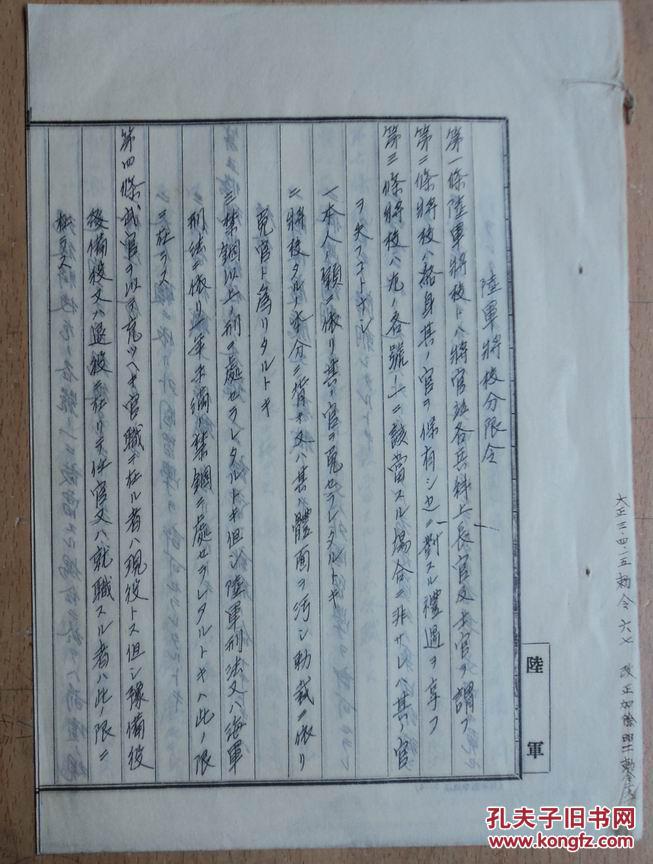 陸軍將校分限令
第一條陸軍將校トハ將官竝各兵科上長官及士官ヲ謂フ
第二條將校ハ終身其ノ官ヲ保有シ之ニ對スル禮遇ヲ享フ
第三條將校ハ左ノ各號ノ一ニ該當スル場合ニ非サレハ其ノ官
ヲ失フコトナシ
一本人ノ願ニ依リ其ノ官ヲ免セラレタルトキ
二將校タルノ本分ニ背キ又ハ其ノ體面ヲ汚シ勅裁ニ依リ
免官ト為リタルトキ
三禁錮以上ノ刑ニ處セラレタルトキ但シ陸軍刑法又ハ海軍
刑法ニ依リ一年未滿ノ禁錮ニ處セラレタルトキハ此ノ限
ニ在ラス
第四條武官ヲ以テ充ツヘキ官職ニ在ル者ハ現役トス但シ豫備役
後備役又ハ退役ニ在リテ任官又ハ就職スル者ハ此ノ限ニ
在ラス
陸軍
大正三・四・五勅令六七 改正
孔夫子旧书网
www.kongfz.com